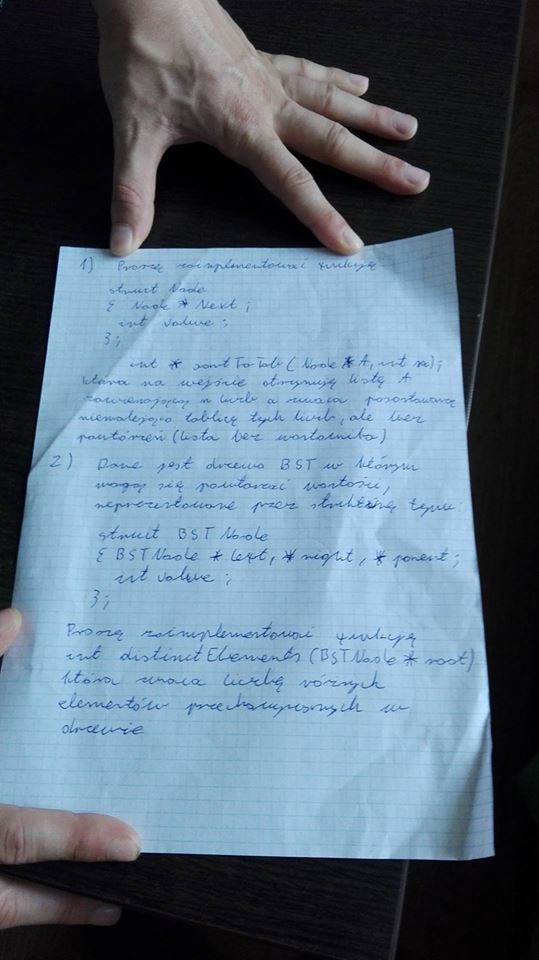 1) Proszę zaimplementować funkcję
struct Node
{ Node * Next ;
int value ;
} ;
int * sortToTab ( Node * A, int );
która na wejście otrzymuję listę A
zawierającą n liczb a zwraca posortowaną
niemalejąco tablicę tych liczb, ale bez
powtórzeń (lista bez wartownika)
2) Dane jest drzewo BST w którym
mogą się powtarzać wartości,
reprezentowane przez strukturę typu:
struct BST Node
{ BSTNode * left, * right, * parent ;
int value ;
} ;
Proszę zaimplementować funkcję
int distinctElements (BSTNode * root)
która zwraca liczbę różnych
elementów przechowywanych w
drzewie